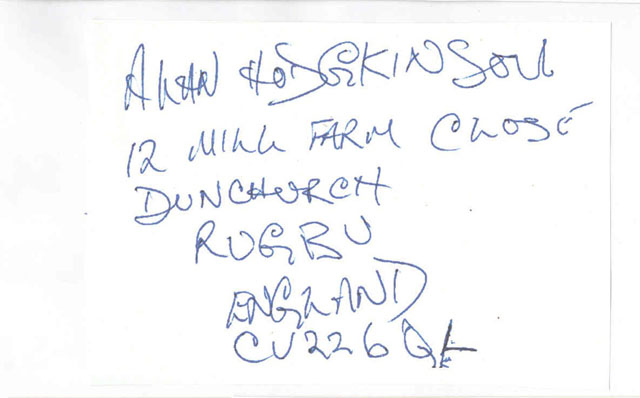 ALAN HODGKINSON
12 MILL FARM CLOSE
DUNCHURCH
RUGBY
ENGLAND
CV22 6QL